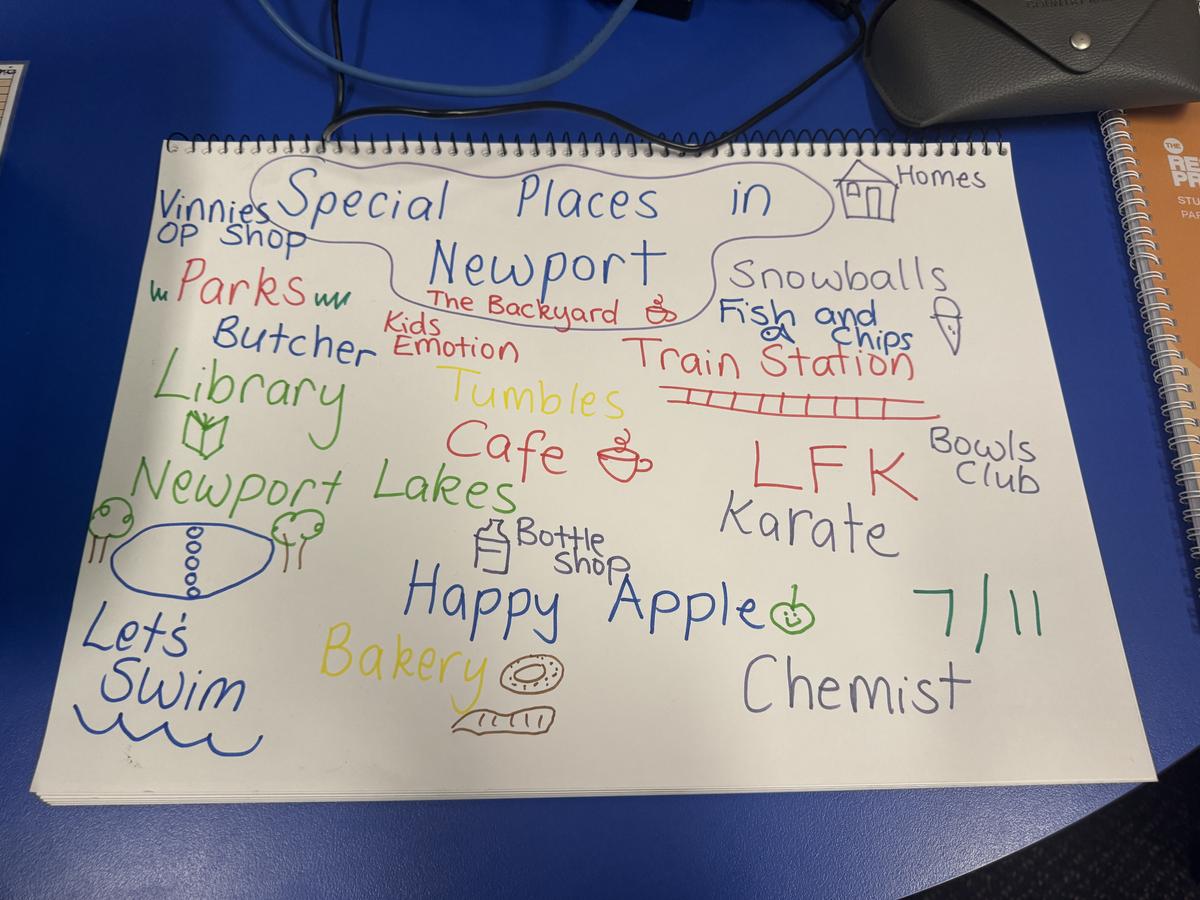 Special Places in
Newport
Homes
Vinnies
OP Shop
Parks
The Backyard
Snowballs
Fish and
Chips
Butcher
Kids
Emotion
Train Station
Library
Tumbles
Cafe
LFK
Bowls
Club
Newport Lakes
Karate
Bottle
Shop
Happy Apple
7/11
Let's
Swim
Bakery
Chemist
THE